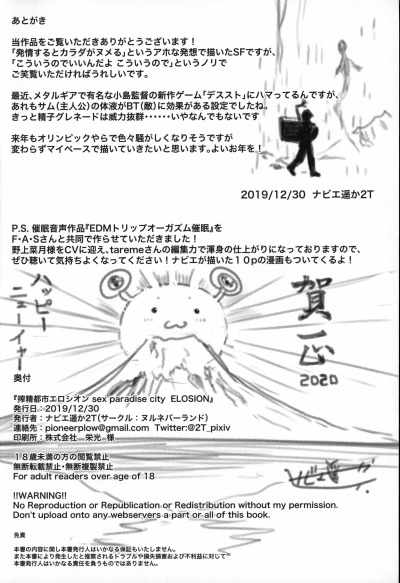 あとがき
当作品をご覧いただきありがとうございます！
「発情するとカラダがヌメる」というアホな発想で描いたSFですが、
「こういうのでいいんだよ こういうので」というノリで
ご笑覧いただければうれしいです。
最近、メタルギアで有名な小島監督の新作ゲーム「デススト」にハマってるんですが、
あれもサム（主人公）の体液がBT（敵）に効果がある設定でしたね。
きっと精子グレネードは威力抜群・・・・・・いやなんでもないです
来年もオリンピックやらで色々騒がしくなりそうですが
変わらずマイペースで描いていきたいと思います。よいお年を！
2019/12/30 ナビエ遥か2T
P.S. 催眠音声作品『EDMトリップオーガズム催眠』を
F・A・Sさんと共同で作らせていただきました！
野上菜月様をCVに迎え、taremeさんの編集力で渾身の仕上がりになっておりますので、
ぜひ聴いて気持ちよくなってください！ナビエが描いた１０pの漫画もついてくるよ！
ハッピー
ニューイヤー
賀正
2020
奥付
『搾精都市エロシオン sex paradise city ELOSION』
発行日：2019/12/30
発行者：ナビエ遥か2T（サークル：ヌルネバーランド）
連絡先：pioneerplow@gmail.com Twitter:@2T_pixiv
印刷所：株式会社 栄光 様
１８歳未満の方の閲覧禁止
無断転載禁止・無断複製禁止
For adult readers over age of 18
ナビエ遥か
!!WARNING!!
No Reproduction or Republication or Redistribution without my permission.
Don't upload onto any webservers a part or all of this book.
免責
本書の内容に関し本書発行人はいかなる保証もいたしません。
また本書により発生したと推察されるトラブルや損失損害および不利益に対して
本書発行人はいかなる責任を負うものではありません。